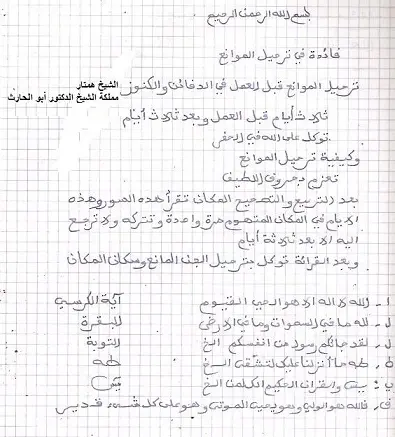 بسم الله الرحمن الرحيم
فائدة في ترحيل الموانع
ترحيل الموانع قبل العمل في الدفائن والكنوز
الشيخ همتار
مملكة الشيخ الدكتور أبو الحارث
ثلاث أيام قبل العمل وبعد ثلاث أيام
توكل على الله في الحفر
وكيفية ترحيل الموانع
تعزم بحروف اللطيف
بعد التربيع والتصحيح المكان تقرأ هذه السور وهذه
الايام في المكان المتهوم مرة واحدة وتتركه ولا ترجع
اليه الا بعد ثلاثة أيام
وبعد القرائة توكل بترحيل الجن المانع وسكاني المكان
ا - الله لا اله الا هو الحي القيوم آية الكرسي
ل - لله ما في السموات وما في الارض البقرة
ل - لقد جائكم رسول من انفسكم الخ التوبة
ط - طه ما أنزلنا عليك لتشقى الخ طه
ي - يس والقران الحكيم الخ يس
ف - فالله هو الولي وهو يحي الموتى وهو على كل شيء قدير